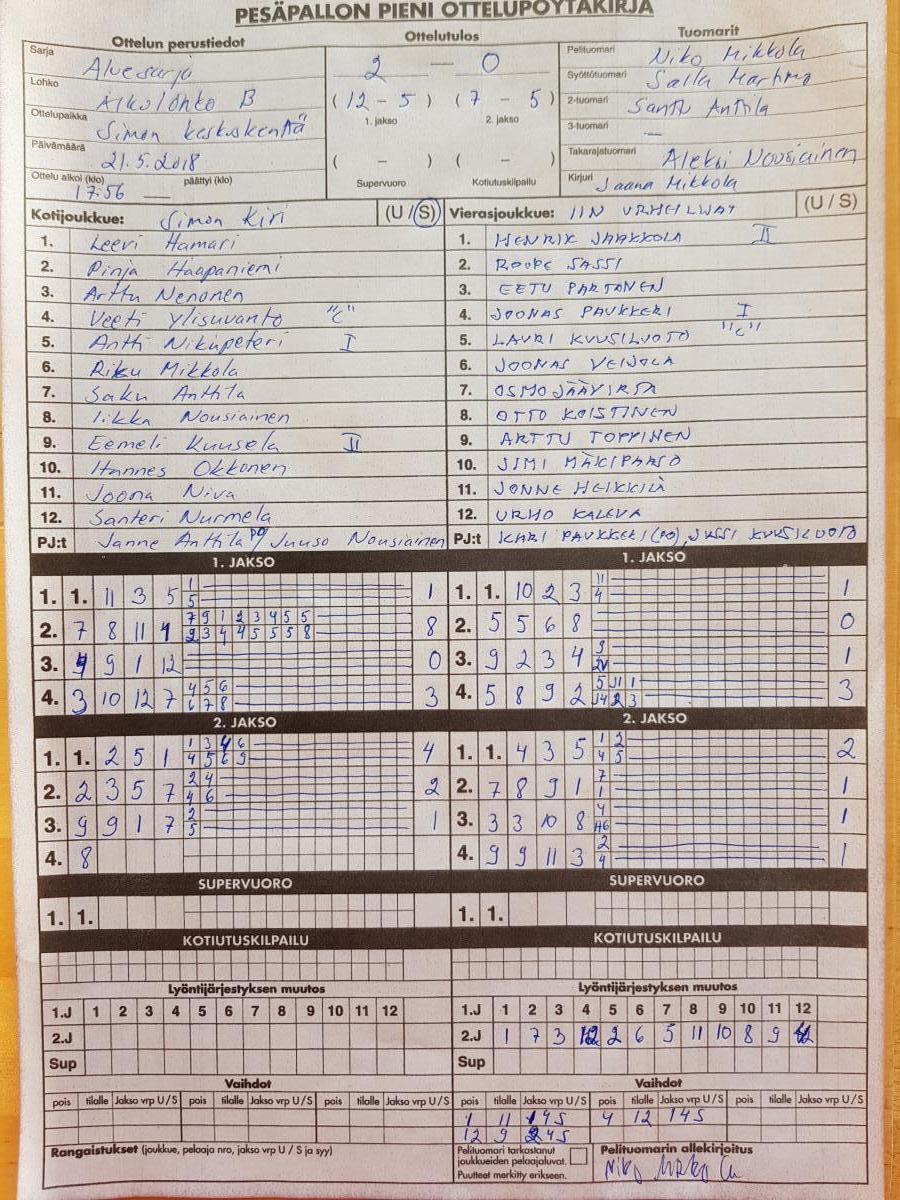 PESÄPALLON PIENI OTTELUPÖYTÄKIRJA
Ottelun perustiedot
Ottelutulos
Tuomarit
Sarja
Aluesarja
Lohko
Alkulohko B
Ottelupaikka
Simon keskuskenttä
Päivämäärä
21.5.2018
Ottelu alkoi (klo) 17:56 päättyi (klo) —
2 — 0
( 12 - 5 ) ( 7 - 5 )
1. jakso 2. jakso
( - ) ( - )
Supervuoro Kotiutuskilpailu
Pelituomari Niko Mikkola
Syöttötuomari Salla Marttimo
2-tuomari Santtu Anttila
3-tuomari —
Takarajatuomari Aleksi Nousiainen
Kirjuri Jaana Mikkola
Kotijoukkue: Simon Kiri (U / S)
1. Leevi Hamari
2. Pinja Haapaniemi
3. Arttu Nenonen
4. Veeti Ylisuvanto "C"
5. Antti Nikupeteri I
6. Riku Mikkola
7. Saku Anttila
8. Iikka Nousiainen
9. Eemeli Kuusela II
10. Hannes Okkonen
11. Joona Niva
12. Santeri Nurmela
PJ:t Janne Anttila pg Juuso Nousiainen
Vierasjoukkue: IIN URHEILIJAT (U / S)
1. HENRIK JAAKKOLA II
2. ROOPE SASSI
3. EETU PARTANEN
4. JOONAS PAUKKERI I
5. LAURI KUUSILUOTO "C"
6. JOONAS VEIJOLA
7. OSMO JÄÄVIRTA
8. OTTO KOISTINEN
9. ARTTU TOPPINEN
10. JIMI MÄKIPAASO
11. JONNE HEIKKILÄ
12. URHO KALEVA
PJ:t KARI PAUKKERI (PG), JUSSI KUUSILUOTO
1. JAKSO
1. 1. 11 3 5 1 1
5
2. 7 8 11 1 7 9 1 2 3 4 5 5 8
2 3 4 4 5 5 5 8
3. 4 9 1 12 0
4. 3 10 12 7 4 5 6 3
6 7 8
2. JAKSO
1. 1. 2 5 1 1 3 4 6 4
4 5 6 9
2. 2 3 5 7 2 4 2
4 6
3. 9 9 1 7 2 1
5
4. 8
SUPERVUORO
1. 1.
KOTIUTUSKILPAILU
Lyöntijärjestyksen muutos
1.J 1 2 3 4 5 6 7 8 9 10 11 12
2.J
Sup
Vaihdot
pois tilalle Jakso vrp U / S pois tilalle Jakso vrp U / S pois tilalle Jakso vrp U / S
Rangaistukset (joukkue, pelaaja nro, jakso vrp U / S ja syy)
1. JAKSO
1. 1. 10 2 3 11 1
4
2. 5 5 6 8 0
3. 9 2 3 4 9 1
4. 5 8 9 2 5 11 1 3
2 3
2. JAKSO
1. 1. 4 3 5 1 2 2
4 5
2. 7 8 9 1 7 1
1
3. 3 3 10 8 4 1
4. 9 9 11 3 2 1
4
SUPERVUORO
1. 1.
KOTIUTUSKILPAILU
Lyöntijärjestyksen muutos
1.J 1 2 3 4 5 6 7 8 9 10 11 12
2.J 1 7 3 12 2 6 5 11 10 8 9
Sup
Vaihdot
pois tilalle Jakso vrp U / S pois tilalle Jakso vrp U / S pois tilalle Jakso vrp U / S
1 11 14S 4 12 14S
12 9 24S
Pelituomari tarkastanut
joukkueiden pelaajaluvat.
Puutteet merkitty erikseen.
Pelituomarin allekirjoitus